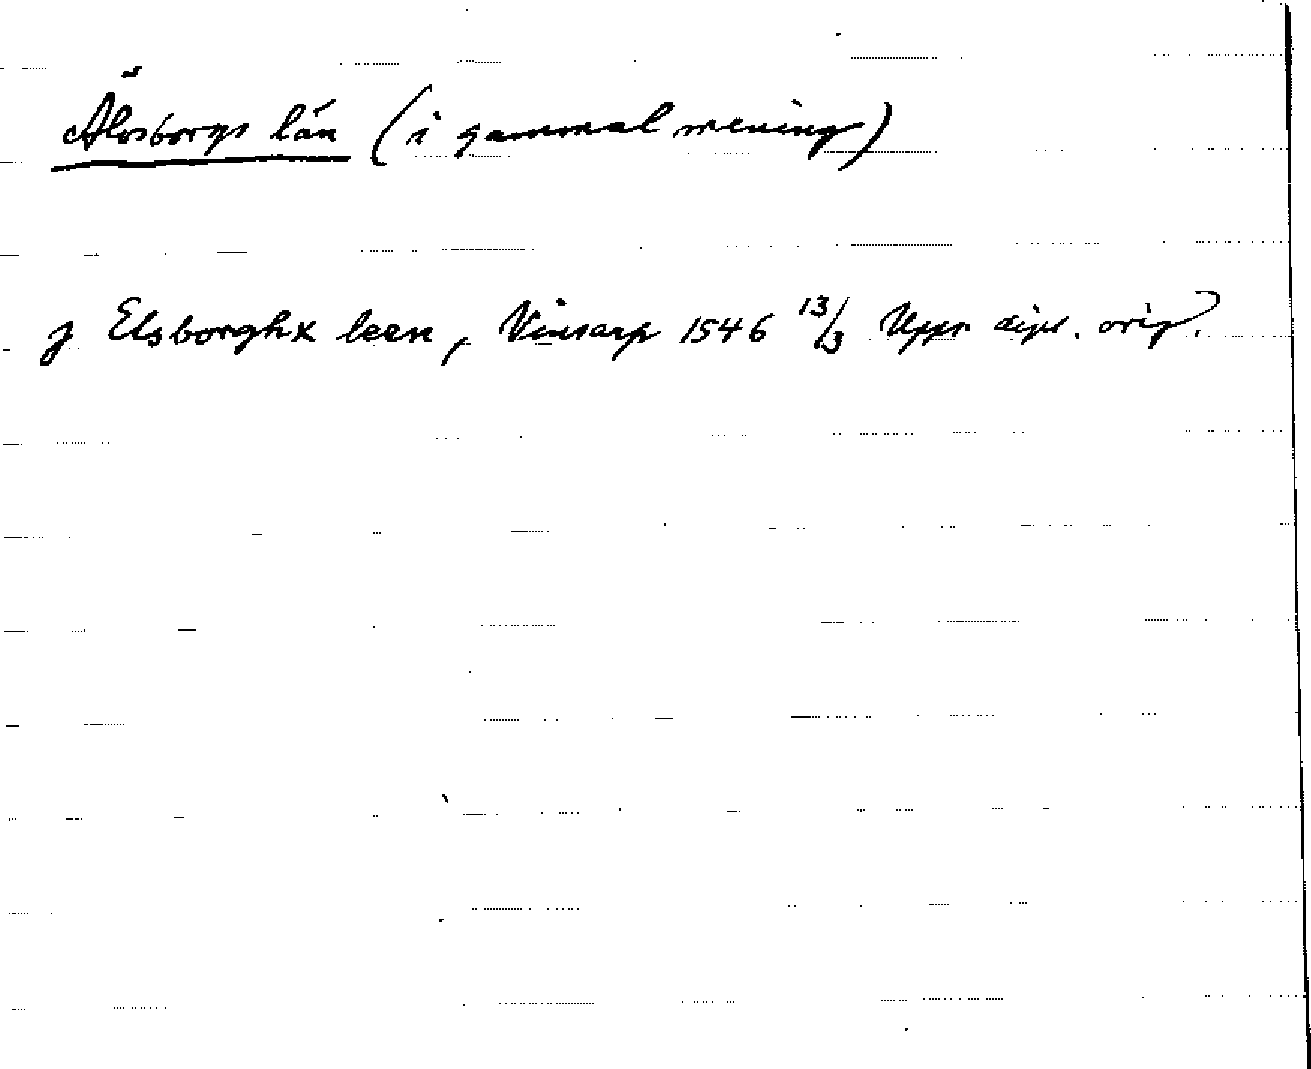 Älvsborgs län (i gammal mening)
j Elsborghx leen, Vinsarp 1546 13/3 Upps dipl. orig.